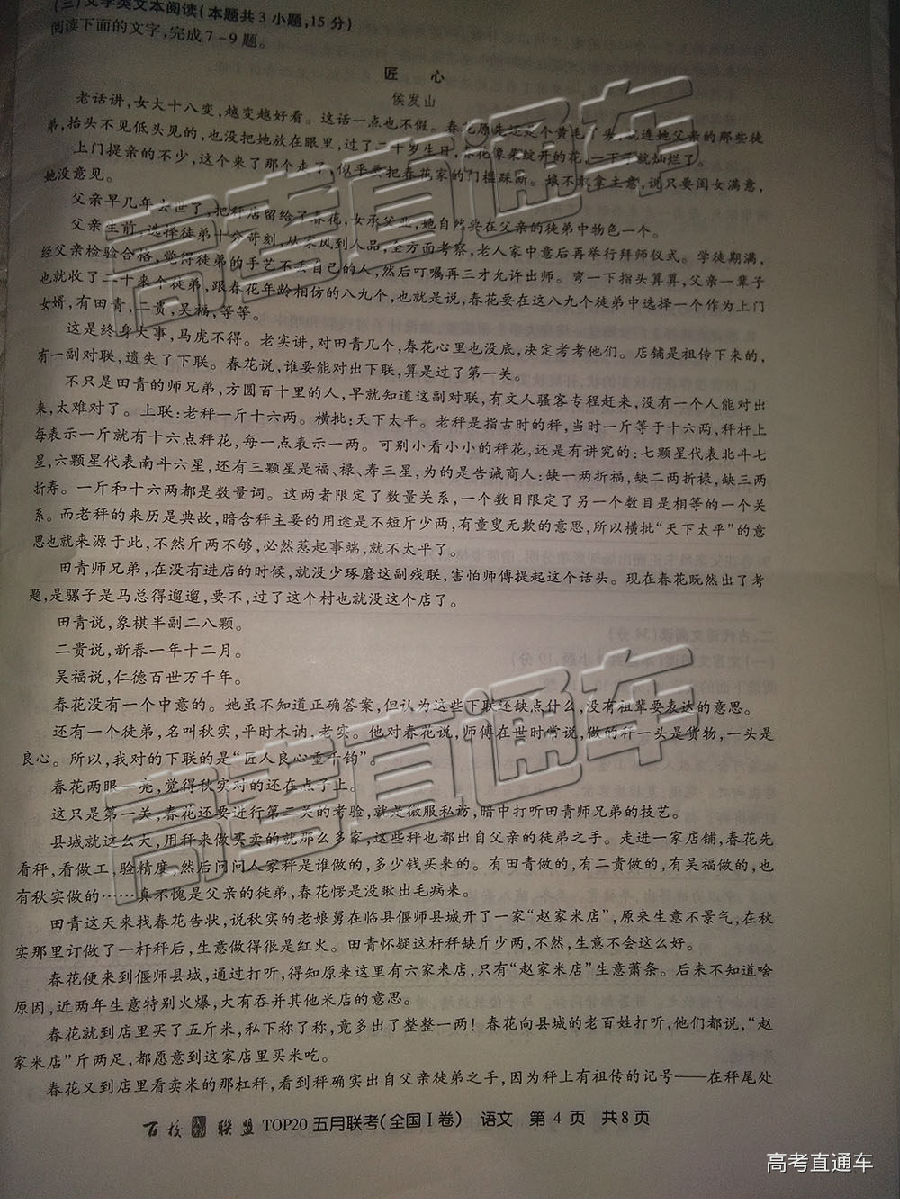 (三)文学类文本阅读(本题共3小题,15分)
阅读下面的文字,完成7~9题。
匠 心
侯发山
老话讲,女大十八变,越变越好看。这话一点也不假。春花原先还是个黄毛丫头,连她父亲的那些徒
弟,抬头不见低头见的,也没把她放在眼里,过了二十岁生日,春花像朵绽开的花,一下子就灿烂了。
上门提亲的不少,这个来了那个走了,似乎要把春花家的门槛踩断。娘不拿主意,说只要闺女满意,
她没意见。
父亲早几年去世了,把秤店留给了春花,女承父业,她自然要在父亲的徒弟中物色一个。
父亲生前,选择徒弟十分苛刻,从家风到人品,全方面考察,老人家中意后再举行拜师仪式。学徒期满,
经父亲检验合格,觉得徒弟的手艺不丢自己的人,然后叮嘱再三才允许出师。弯一下指头算算,父亲一辈子
也就收了二十来个徒弟,跟春花年龄相仿的八九个,也就是说,春花要在这八九个徒弟中选择一个作为上门
女婿,有田青,二贵,吴福,等等。
这是终身大事,马虎不得。老实讲,对田青几个,春花心里也没底,决定考考他们。店铺是祖传下来的,
有一副对联,遗失了下联。春花说,谁要能对出下联,算是过了第一关。
不只是田青的师兄弟,方圆百十里的人,早就知道这副对联,有文人骚客专程赶来,没有一个人能对出
来,太难对了。上联:老秤一斤十六两。横批:天下太平。老秤是指古时的秤,当时一斤等于十六两,秤杆上
每表示一斤就有十六点秤花,每一点表示一两。可别小看小小的秤花,还是有讲究的:七颗星代表北斗七
星,六颗星代表南斗六星,还有三颗星是福、禄、寿三星,为的是告诫商人:缺一两折福,缺二两折禄,缺三两
折寿。一斤和十六两都是数量词。这两者限定了数量关系,一个数目限定了另一个数目是相等的一个关
系。而老秤的来历是典故,暗含秤主要的用途是不短斤少两,有童叟无欺的意思,所以横批“天下太平”的意
思也就来源于此,不然斤两不够,必然荡起事端,就不太平了。
田青师兄弟,在没有进店的时候,就没少琢磨这副残联,害怕师傅提起这个话头。现在春花既然出了考
题,是骡子是马总得遛遛,要不,过了这个村也就没这个店了。
田青说,象棋半副二八颗。
二贵说,新春一年十二月。
吴福说,仁德百世万千年。
春花没有一个中意的。她虽不知道正确答案,但认为这些下联还缺点什么,没有祖辈要表达的意思。
还有一个徒弟,名叫秋实,平时木讷,老实。他对春花说,师傅在世时常说,做的秤一头是货物,一头是
良心。所以,我对的下联的是“匠人良心重千钧”。
春花两眼一亮,觉得秋实对的还在点子上。
这只是第一关,春花还要进行第二关的考验,就是微服私访,暗中打听田青师兄弟的技艺。
县城就这么大,用秤来做买卖的就那么多家,这些秤也都出自父亲的徒弟之手。走进一家店铺,春花先
看秤,看做工,验精度,然后问问人家秤是谁做的,多少钱买来的。有田青做的,有二贵做的,有吴福做的,也
有秋实做的……真不愧是父亲的徒弟,春花愣是没瞅出毛病来。
田青这天来找春花告状,说秋实的老娘舅在临县偃师县城开了一家“赵家米店”,原来生意不景气,在秋
实那里订做了一杆秤后,生意做得很是红火。田青怀疑这杆秤缺斤少两,不然,生意不会这么好。
春花便来到偃师县城,通过打听,得知原来这里有六家米店,只有“赵家米店”生意萧条。后来不知道啥
原因,近两年生意特别火爆,大有吞并其他米店的意思。
春花就到店里买了五斤米,私下称了称,竟多出了整整一两!春花向县城的老百姓打听,他们都说,“赵
家米店”斤两足,都愿意到这家店里买米吃。
春花又到店里看卖米的那杠秤,看到秤确实出自父亲徒弟之手,因为秤上有祖传的记号——在秤尾处
百校联盟TOP20五月联考(全国Ⅰ卷) 语文 第4页 共8页
高考直通车
高考直通车
高考直通车
高考直通车